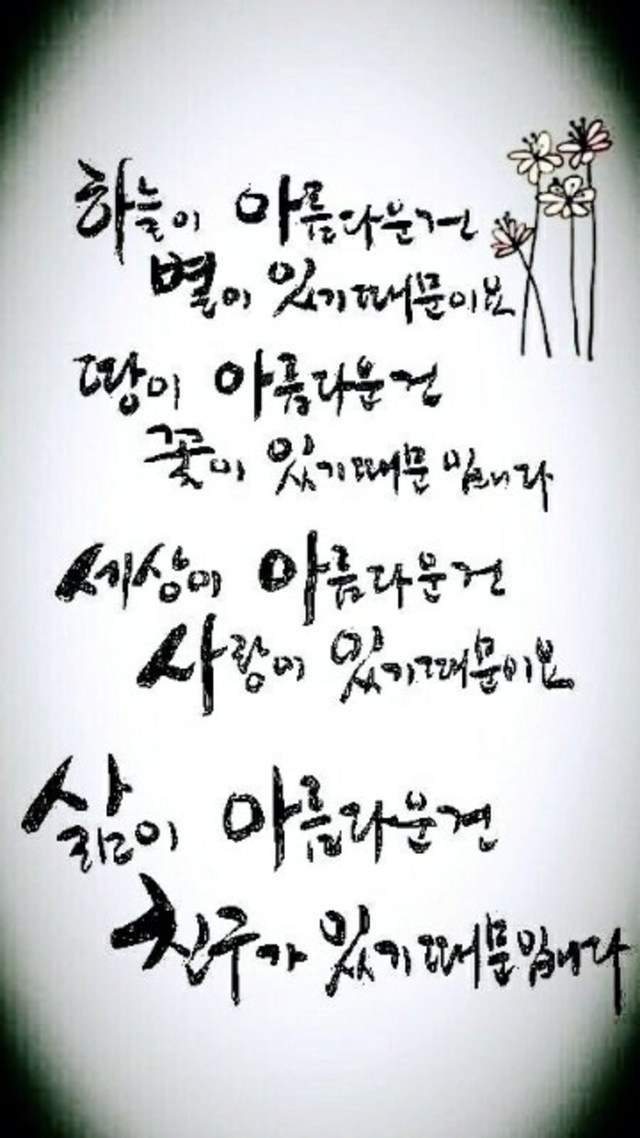 하늘이 아름다운건
별이 있기때문이요
땅이 아름다운건
꽃이 있기때문 입니다
세상이 아름다운건
사랑이 있기때문이요
삶이 아름다운건
친구가 있기때문입니다